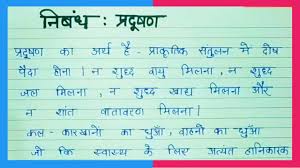 निबंध : प्रदूषण
प्रदूषण का अर्थ है - प्राकृतिक संतुलन मे दोष
पैदा होना । न शुद्ध वायु मिलना , न शुद्ध
जल मिलना , न शुद्ध खाद्य मिलना और
न शांत वातावरण मिलना ।
कल - कारखानों का धुआँ , वाहनों का धुआँ
जो कि स्वास्थ्य के लिए अत्यंत हानिकारक